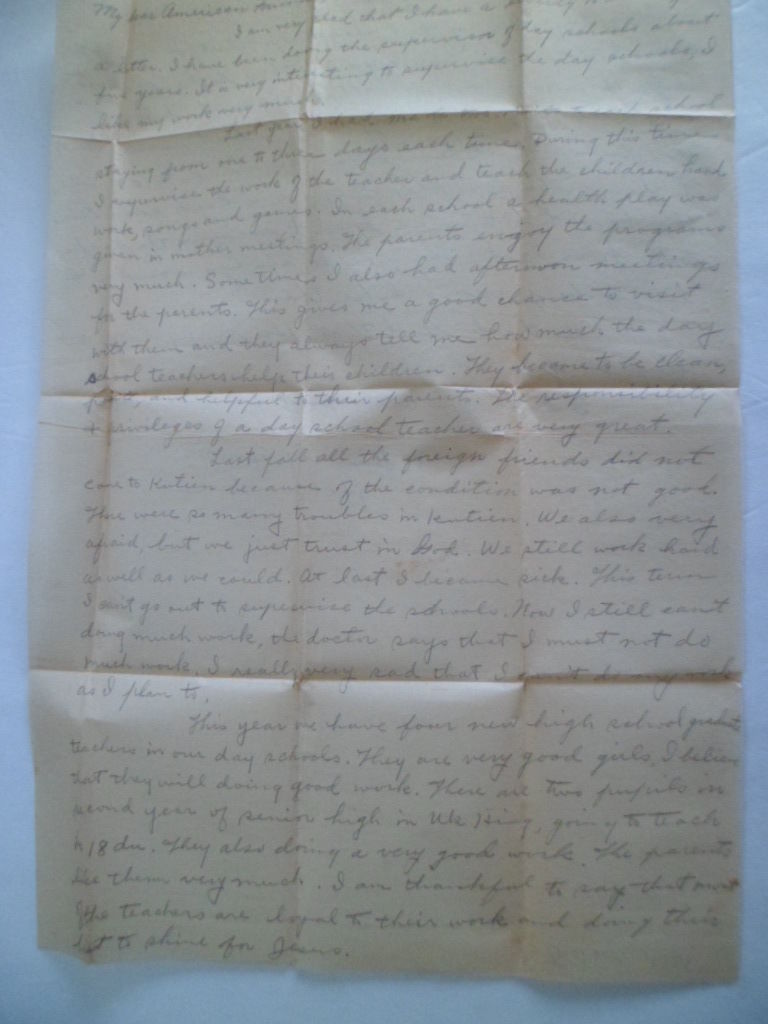 My dear American
I am very glad that I have a
a letter. I have been doing the supervisor of day schools about
five years. It is very interesting to supervise the day schools, I
like my work very much.
Last year I school
staying from one to three days each time. During this time
I supervise the work of the teacher and teach the children hand
work, songs and games. In each school a health play was
given in mother meetings. The parents enjoy the programs
very much. Sometimes I also had afternoon meetings
for the parents. This gives me a good chance to visit
with them and they always tell me how much the day
school teachers help their children. They became to be clean,
and helpful to their parents. The responsibility
+ privileges of a day school teacher are very great.
Last fall all the foreign friends did not
come to Kutien because of the condition was not good.
There were so many troubles in Kutien. We also very
afraid, but we just trust in God. We still work hard
as well as we could. At last I became sick. This term
I can't go out to supervise the schools. Now I still can't
doing much work, the doctor says that I must not do
much work. I really very sad that I can't do my work
as I plan to.
This year we have four new high school graduate
teachers in our day schools. They are very good girls, I believe
that they will doing good work. There are two pupils in
second year of senior high in Uk Hing, going to teach
in 18 du. They also doing a very good work. The parents
like them very much. I am thankful to say that most
of the teachers are loyal to their work and doing their
best to shine for Jesus.